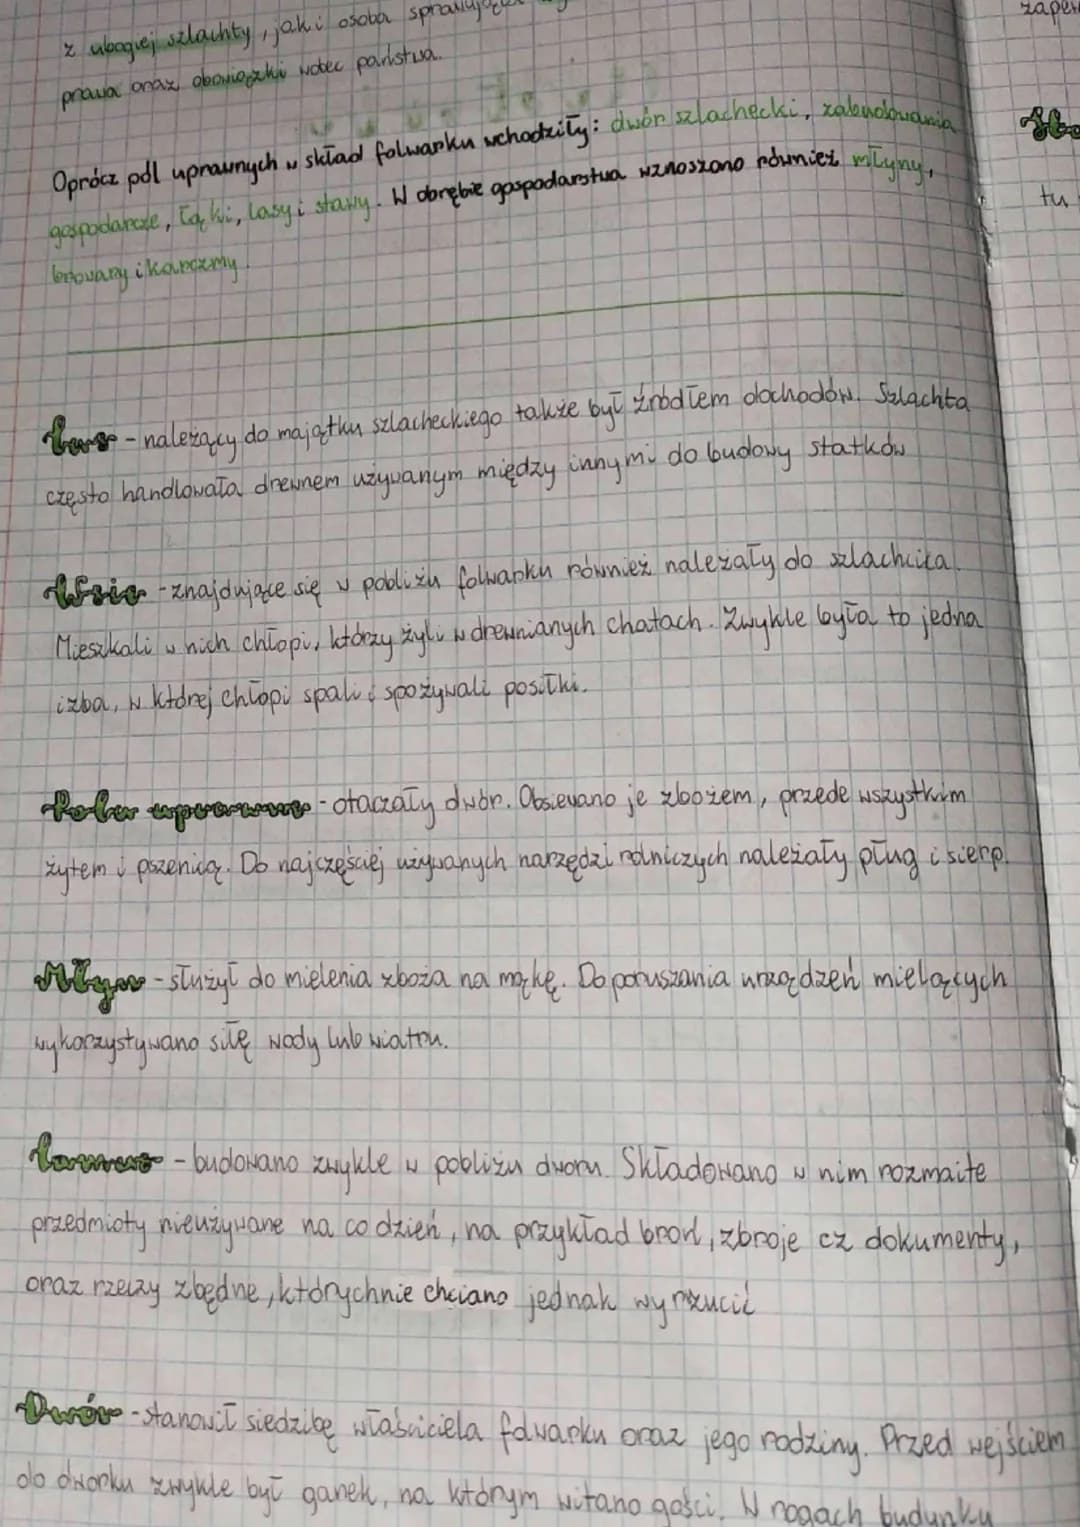 z ubogiej szlachty, jak i osoba
prawa oraz obowiązki wobec państwa.
Oprócz pól uprawnych w skład folwarku wchodziły: dwór szlachecki, zabudowania
gospodarcze, łąki, lasy i stawy. W obrębie gospodarstwa wznoszono również młyny,
browary i karczmy.
Las - należący do majątku szlacheckiego także był źródłem dochodów. Szlachta
często handlowała drewnem używanym między innymi do budowy statków
Wsie - znajdujące się w pobliżu folwarku również należały do szlachcica.
Mieszkali w nich chłopi, którzy żyli w drewnianych chatach. Zwykle była to jedna
izba, w której chłopi spali i spożywali posiłki.
Pola uprawne - otaczały dwór. Obsiewano je zbożem, przede wszystkim
żytem i pszenicą. Do najczęściej używanych narzędzi rolniczych należały pług i sierp.
Młyn - służył do mielenia zboża na mąkę. Do poruszania urządzeń mielących
wykorzystywano siłę wody lub wiatru.
Lamus - budowano zwykle w pobliżu dworu. Składowano w nim rozmaite
przedmioty nieużywane na co dzień, na przykład broń, zbroje cz dokumenty,
oraz rzeczy zbędne, których nie chciano jednak wyrzucić
Dwór - stanowił siedzibę właściciela folwarku oraz jego rodziny. Przed wejściem
do dworku zwykle był ganek, na którym witano gości. W rogach budynku
tu